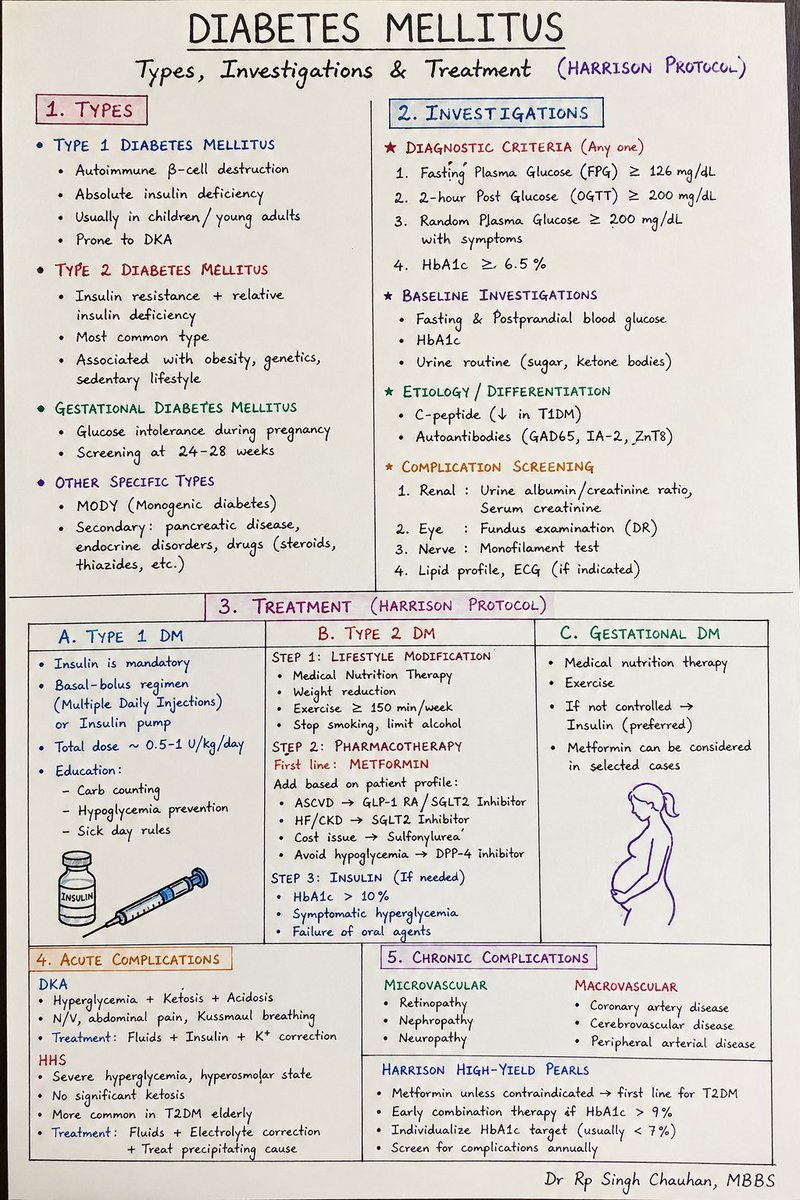 DIABETES MELLITUS
Types, Investigations & Treatment (HARRISON PROTOCOL)
1. TYPES
• TYPE 1 DIABETES MELLITUS
• Autoimmune β-cell destruction
• Absolute insulin deficiency
• Usually in children/young adults
• Prone to DKA
• TYPE 2 DIABETES MELLITUS
• Insulin resistance + relative
insulin deficiency
• Most common type
• Associated with obesity, genetics,
sedentary lifestyle
• GESTATIONAL DIABETES MELLITUS
• Glucose intolerance during pregnancy
• Screening at 24-28 weeks
• OTHER SPECIFIC TYPES
• MODY (Monogenic diabetes)
• Secondary: pancreatic disease,
endocrine disorders, drugs (steroids,
thiazides, etc.)
2. INVESTIGATIONS
★ DIAGNOSTIC CRITERIA (Any one)
1. Fasting Plasma Glucose (FPG) ≥ 126 mg/dL
2. 2-hour Post Glucose (OGTT) ≥ 200 mg/dL
3. Random Plasma Glucose ≥ 200 mg/dL
with symptoms
4. HbA1c ≥ 6.5 %
★ BASELINE INVESTIGATIONS
• Fasting & Postprandial blood glucose
• HbA1c
• Urine routine (sugar, ketone bodies)
★ ETIOLOGY / DIFFERENTIATION
• C-peptide (↓ in T1DM)
• Autoantibodies (GAD65, IA-2, ZnT8)
★ COMPLICATION SCREENING
1. Renal : Urine albumin/creatinine ratio,
Serum creatinine
2. Eye : Fundus examination (DR)
3. Nerve : Monofilament test
4. Lipid profile, ECG (if indicated)
3. TREATMENT (HARRISON PROTOCOL)
A. TYPE 1 DM
• Insulin is mandatory
• Basal-bolus regimen
(Multiple Daily Injections)
or Insulin pump
• Total dose ~ 0.5-1 U/kg/day
• Education:
– Carb counting
– Hypoglycemia prevention
– Sick day rules
INSULIN
B. TYPE 2 DM
STEP 1: LIFESTYLE MODIFICATION
• Medical Nutrition Therapy
• Weight reduction
• Exercise ≥ 150 min/week
• Stop smoking, limit alcohol
STEP 2: PHARMACOTHERAPY
First line: METFORMIN
Add based on patient profile:
• ASCVD → GLP-1 RA/SGLT2 Inhibitor
• HF/CKD → SGLT2 Inhibitor
• Cost issue → Sulfonylurea
• Avoid hypoglycemia → DPP-4 inhibitor
STEP 3: INSULIN (If needed)
• HbA1c > 10 %
• Symptomatic hyperglycemia
• Failure of oral agents
C. GESTATIONAL DM
• Medical nutrition therapy
• Exercise
• If not controlled →
Insulin (preferred)
• Metformin can be considered
in selected cases
4. ACUTE COMPLICATIONS
DKA
• Hyperglycemia + Ketosis + Acidosis
• N/V, abdominal pain, Kussmaul breathing
• Treatment: Fluids + Insulin + K⁺ correction
HHS
• Severe hyperglycemia, hyperosmolar state
• No significant ketosis
• More common in T2DM elderly
• Treatment: Fluids + Electrolyte correction
+ Treat precipitating cause
5. CHRONIC COMPLICATIONS
MICROVASCULAR
• Retinopathy
• Nephropathy
• Neuropathy
MACROVASCULAR
• Coronary artery disease
• Cerebrovascular disease
• Peripheral arterial disease
HARRISON HIGH-YIELD PEARLS
• Metformin unless contraindicated → first line for T2DM
• Early combination therapy if HbA1c > 9 %
• Individualize HbA1c target (usually < 7 %)
• Screen for complications annually
Dr Rp Singh Chauhan, MBBS